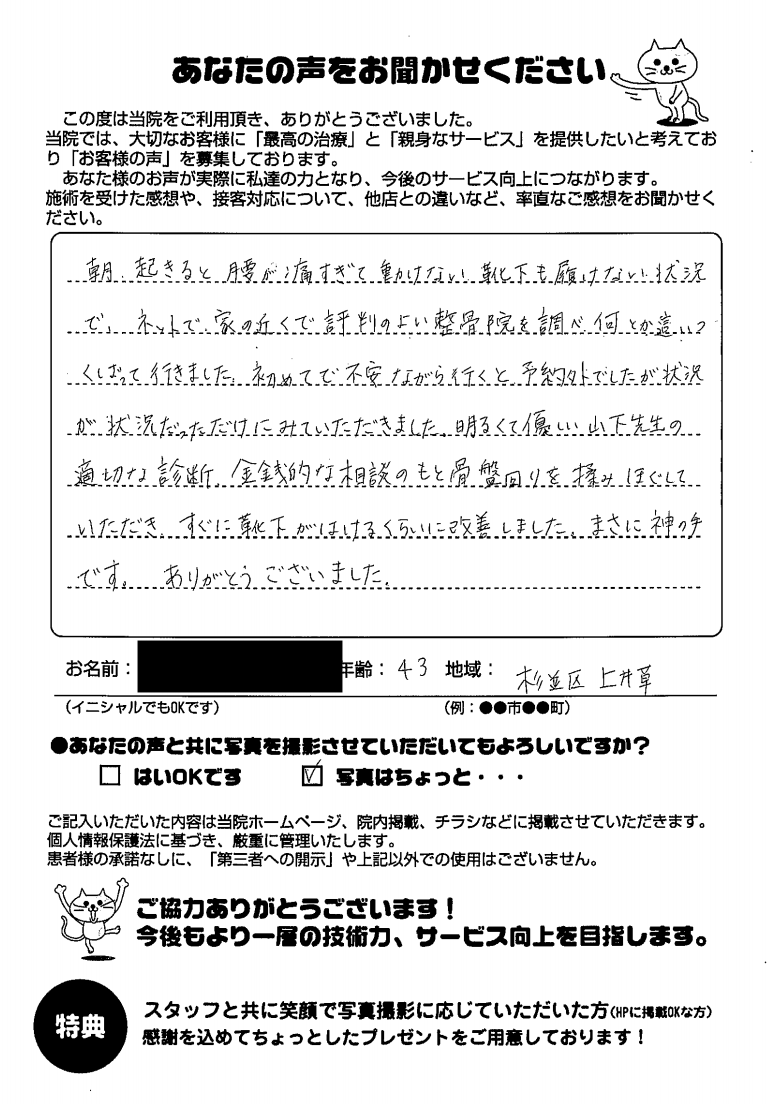 あなたの声をお聞かせください
この度は当院をご利用頂き、ありがとうございました。
当院では、大切なお客様に「最高の治療」と「親身なサービス」を提供したいと考えてお
り「お客様の声」を募集しております。
あなた様のお声が実際に私達の力となり、今後のサービス向上につながります。
施術を受けた感想や、接客対応について、他店との違いなど、率直なご感想をお聞かせく
ださい。
朝、起きると腰が痛すぎて動けない、靴下も履けない状況
で、ネットで、家の近くで評判のよい整骨院を調べ、何とか這いつ
くばって行きました。初めてで不安ながら行くと、予約外でしたが状況
が状況だっただけにみていただきました。明るくて優しい山下先生の
適切な診断、金銭的な相談のもと骨盤回りを揉みほぐして
いただき、すぐに靴下がはけるくらいに改善しました。まさに神の手
です。ありがとうございました。
お名前： 年齢：43 地域：杉並区 上井草
（イニシャルでもOKです） （例：●●市●●町）
●あなたの声と共に写真を撮影させていただいてもよろしいですか？
□ はいOKです ☑ 写真はちょっと・・・
ご記入いただいた内容は当院ホームページ、院内掲載、チラシなどに掲載させていただきます。
個人情報保護法に基づき、厳重に管理いたします。
患者様の承諾なしに、「第三者への開示」や上記以外での使用はございません。
ご協力ありがとうございます！
今後もより一層の技術力、サービス向上を目指します。
特典
スタッフと共に笑顔で写真撮影に応じていただいた方（HPに掲載OKな方）
感謝を込めてちょっとしたプレゼントをご用意しております！